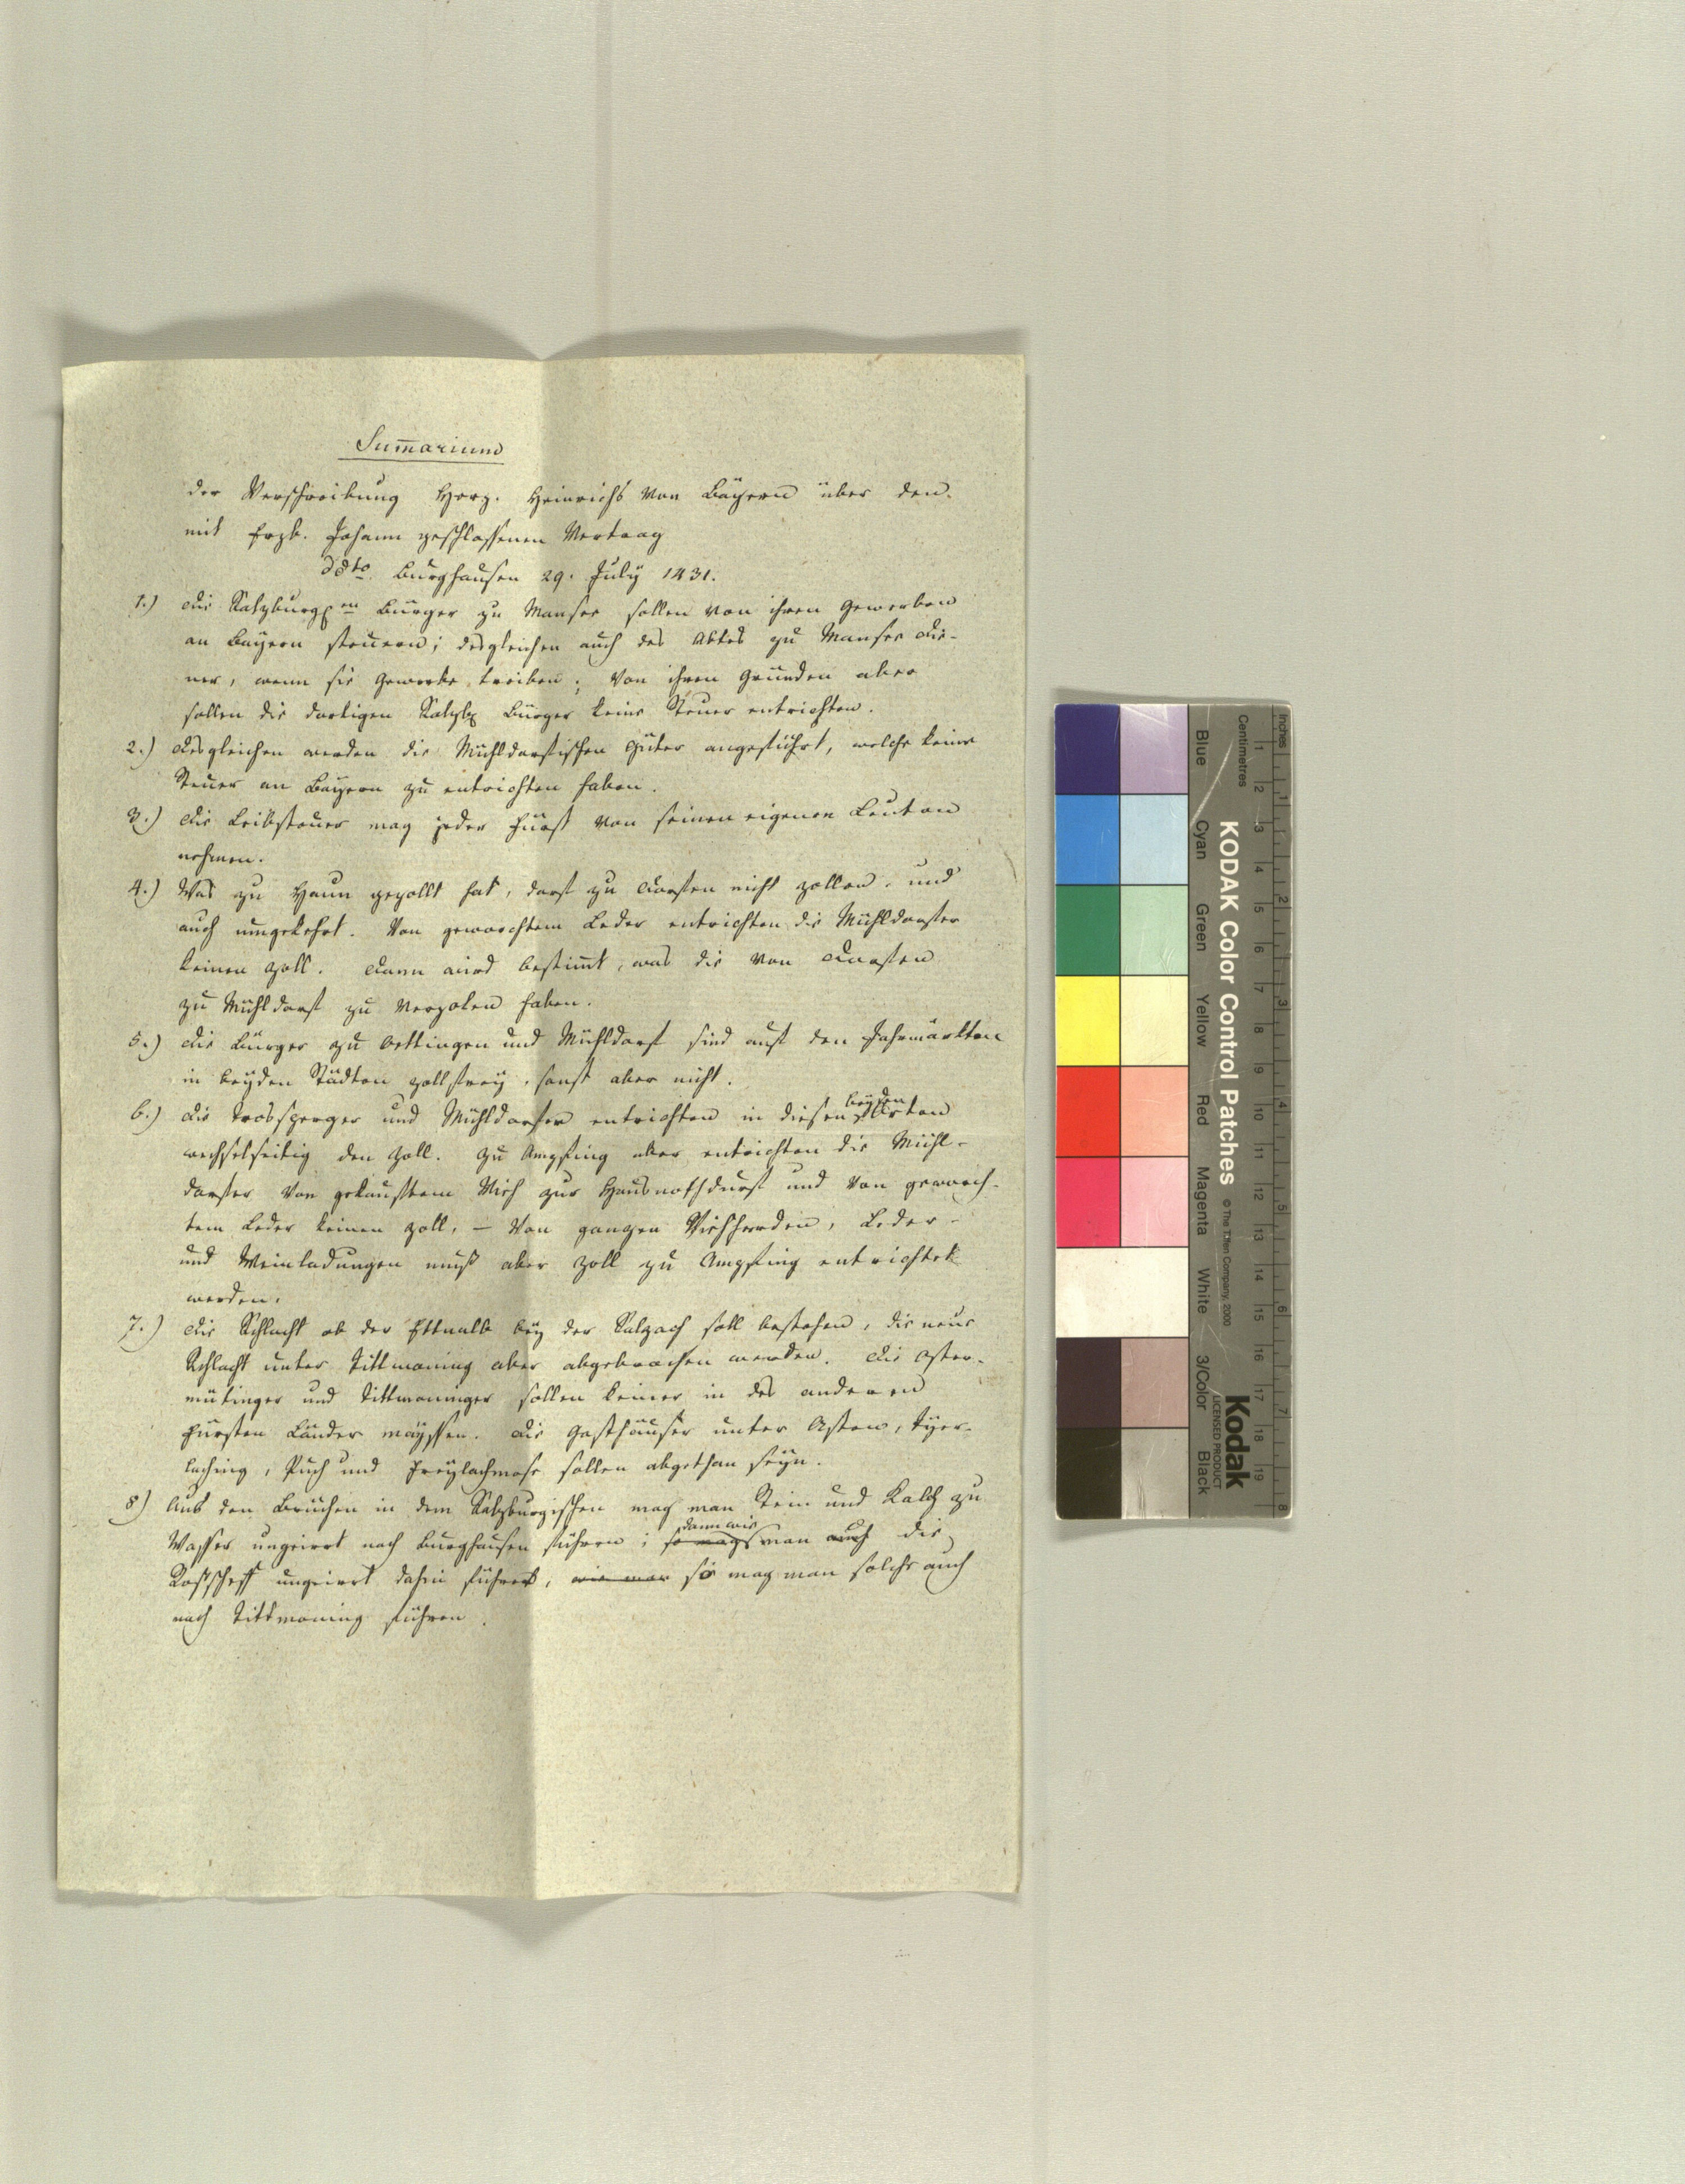 Sum̄arium
der Verschreibung Herz. Heinrichs von Bayern über den
mit Erzb. Johann geschlossenen Vertrag
ddto. Burghausen 29. July 1431.
1.) Die Salzburg^en Bürger zu Mansee sollen von ihren Gewerben
an Bayern steuern; desgleichen auch des Abtes zu Mansee Die-
ner, wenn sie Gewerbe treiben; von ihren Gründen aber
sollen die dortigen Salzb. Bürger keine Steuer entrichten.
2.) Desgleichen werden die Mühldorfischen Güter angeführt, welche keine
Steuer an Bayern zu entrichten haben.
3.) Die Leibsteuer mag jeder Fürst von seinen eigenen Leuten
nehmen.
4.) Was zu Haun gezollt hat, darf zu Dorfen nicht zollen, und
auch umgekehrt. Von geworchtem Leder entrichten die Mühldorfer
keinen Zoll. Dann wird bestim̄t, was die von Dorfen
zu Mühldorf zu verzolen haben.
5.) Die Bürger zu Oettingen und Mühldorf sind auf den Jahrmärkten
in beyden Städten zollfrey, sonst aber nicht.
6.) Die Trosperger und Mühldorfer entrichten in diesen beyden Orten
wechselseitig den Zoll. Zu Ampfing aber entrichten die Mühl-
dorfer von gekauftem Vieh zur Hausnothdurft und von geworch-
tem Leder keinen Zoll, – von ganzen Viehherden, Leder-
und Weinladungen muß aber Zoll zu Ampfing entrichtet
werden.
7.) Die Schlacht ob der Ettnalb bey der Salzach soll bestehen, die neue
Schlacht unter Tittmoning aber abgebrochen werden. Die Oster-
mütinger und Tittmoninger sollen keiner in des anderen
Fürsten Länder mayssen. Die Gasthäuser unter Asten, Tyer-
laching, Puch und Freylachmose sollen abgethan seyn.
8) Aus den Brüchen in dem Salzburgischen mag man Stein und Kalch zu
Wasser ungeirrt nach Burghausen führen; so mag dann wie man auch die
Roßscheff ungeirrt dahin führet, wie man so mag man solche auch
nach Tittmoning führen.
Inches
Centimetres
KODAK Color Control Patches
© The Tiffen Company, 2000
Kodak
LICENSED PRODUCT
Blue
Cyan
Green
Yellow
Red
Magenta
White
3/Color
Black
1
2
3
4
5
6
7
8
9
10
11
12
13
14
15
16
17
18
19
1
2
3
4
5
6
7
8